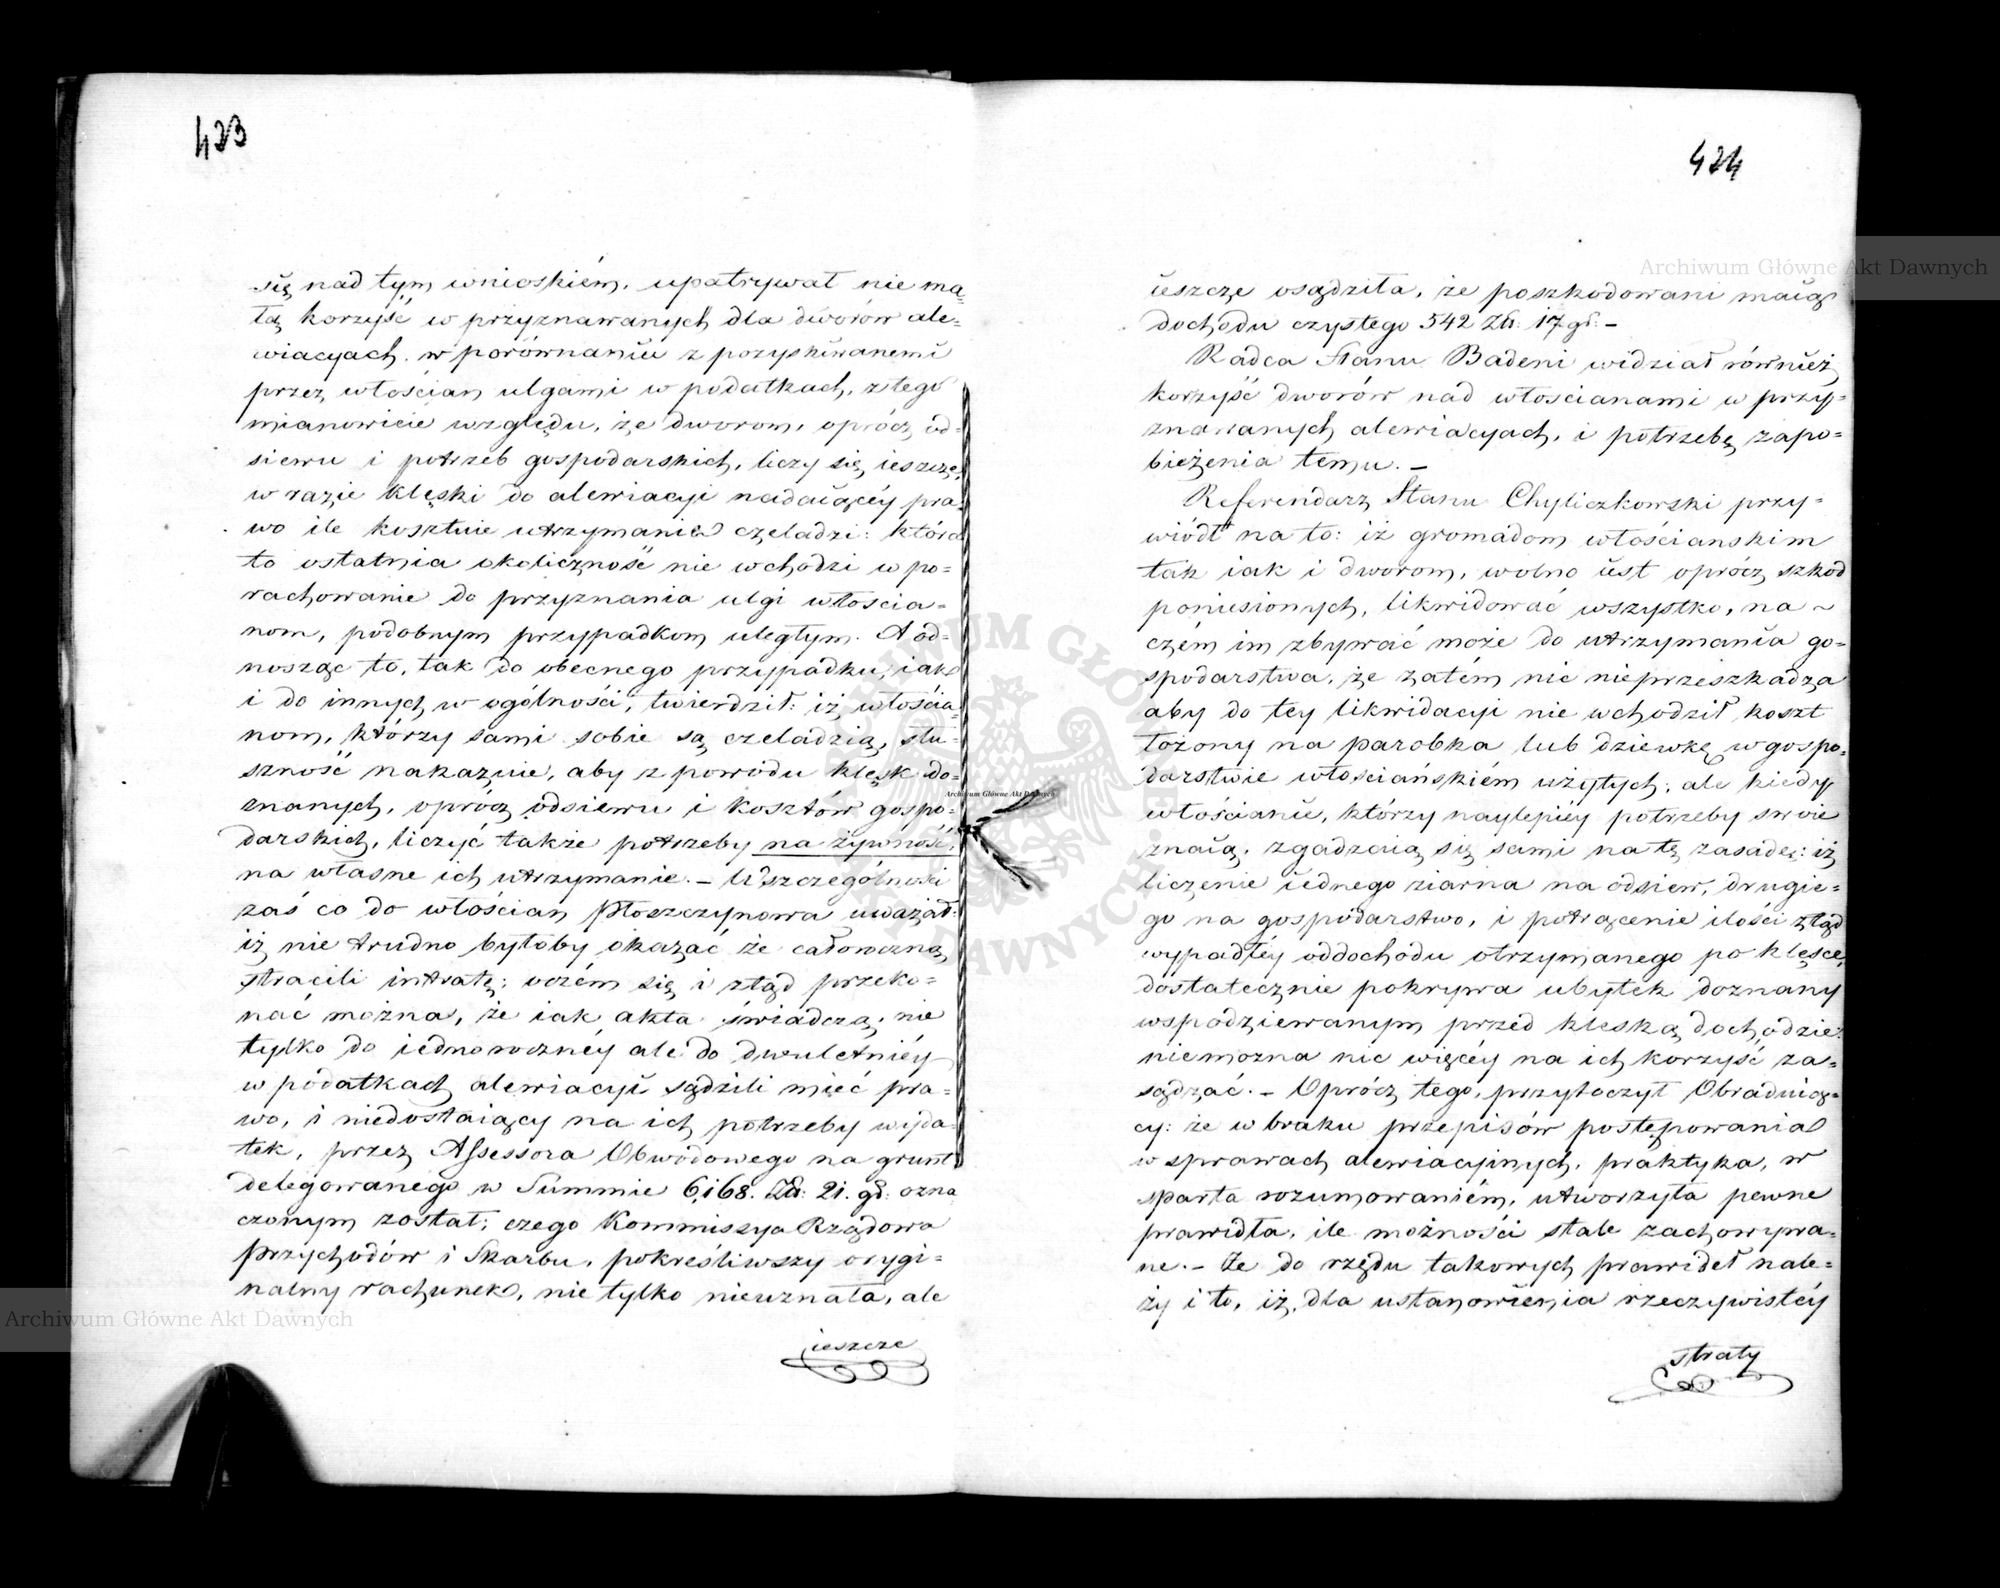 423
się nad tym wnioskiém, upatrywał nie ma=
łą korzyść w przyznawanych dla dworów ale=
wiacyach, w porównaniu z pozyskiwanemi
przez włościan ulgami w podatkach, z tego
mianowicie względu, że dworom, oprócz od=
siewu i potrzeb gospodarskich, liczy się ieszcze,
w razie klęski do alewiacyi nadaiącéy pra=
wo ile kosztuie utrzymanie czeladzi: która
to ostatnia okoliczność nie wchodzi w po=
rachowanie do przyznania ulgi włościa=
nom, podobnym przypadkom uległym. A od=
nosząc to, tak do obecnego przypadku, iako
i do innych w ogólności, twierdził: iż włościa=
nom, którzy sami sobie są czeladzią, słu=
szność nakazuie, aby z powodu klęsk do=
znanych, oprócz odsiewu i kosztów gospo=
darskich, liczyć także potrzeby na żywność,
na własne ich utrzymanie. – W szczególności
zaś co do włościan Płoszczynowa uważał:
iż nie trudno byłoby okazać że całoroczną
stracili intratę; oczém się i ztąd przeko=
nać można, że iak akta świadczą, nie
tylko do iednorocznéy ale do dwuletniéy
w podatkach alewiacyi sądzili mieć pra=
wo, i niedostaiący na ich potrzeby wyda=
tek, przez Assessora Obwodowego na grunt
delegowanego w Summie 6,168. Zł: 21. gr: ozna
czonym został; czego Kommissya Rządowa
Przychodów i Skarbu, pokreśliwszy orygi=
nalny rachunek, nie tylko nieuznała, ale
ieszcze
424
ieszcze osądziła, że poszkodowani maią
dochodu czystego 542 Zł: 17 gr: –
Radca Stanu Badeni widział również
korzyść dworów nad włościanami w przy=
znawanych alewiacyach, i potrzebę zapo=
bieżenia temu. –
Referendarz Stanu Chyliczkowski przy=
wiódł na to: iż gromadom włościanskim
tak iak i dworom, wolno iest oprócz szkod
poniesionych, likwidować wszystko, na ~
czém im zbywać może do utrzymania go=
spodarstwa, że zatém nic nieprzeszkadza
aby do tey likwidacyi nie wchodził koszt
łożony na parobka lub dziewkę w gospo=
darstwie włościańskiém użytych; ale kiedy
włościanie, którzy naylepiéy potrzeby swoie
znaią, zgadzaią się sami na tę zasadę: iż
liczenie iednego ziarna na odsiew, drugie=
go na gospodarstwo, i potrącenie ilości ztąd
wypadłéy od dochodu otrzymanego po klęsce,
dostatecznie pokrywa ubytek doznany
w spodziewanym przed klęską dochodzie:
niemożna nic więcéy na ich korzyść za=
sądzać. – Oprócz tego, przytoczył Obraduią=
cy: że w braku przepisów postępowania
w sprawach alewiacyinych, praktyka, w
sparta rozumowaniém, utworzyła pewne
prawidła, ile możności stale zachowywa=
ne. – Że do rzędu takowych prawideł nale=
ży i to, iż dla ustanowienia rzeczywistéy
straty
Archiwum Główne Akt Dawnych
Archiwum Główne Akt Dawnych
Archiwum Główne Akt Dawnych
ARCHIWUM GŁÓWNE AKT DAWNYCH